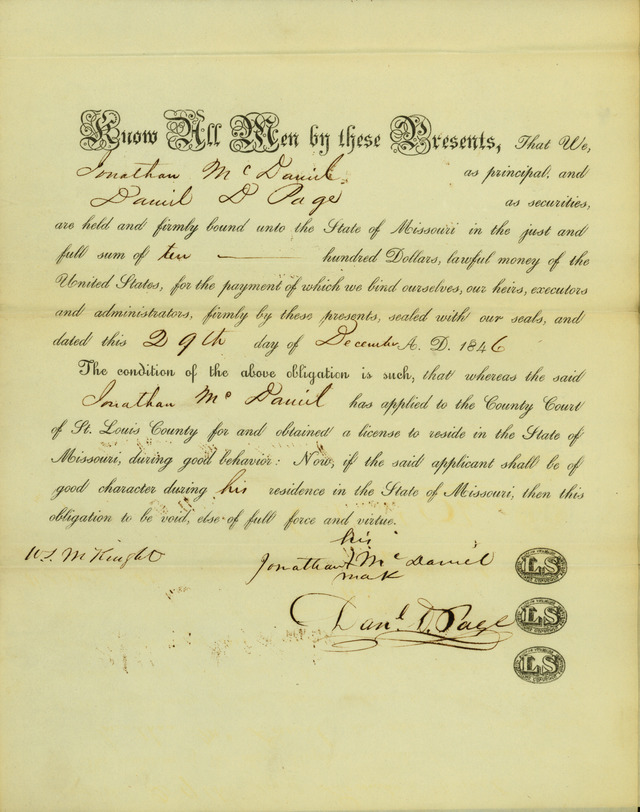 Know All Men by these Presents, That We,
Jonathan Mc Daniel as principal, and
Daniel D Page as securities,
are held and firmly bound unto the State of Missouri in the just and
full sum of ten — hundred Dollars, lawful money of the
United States, for the payment of which we bind ourselves, our heirs, executors
and administrators, firmly by these presents, sealed with our seals, and
dated this 29th day of December A. D. 1846
The condition of the above obligation is such, that whereas the said
Jonathan Mc Daniel has applied to the County Court
of St. Louis County for and obtained a license to reside in the State of
Missouri, during good behavior: Now, if the said applicant shall be of
good character during his residence in the State of Missouri, then this
obligation to be void, else of full force and virtue.
his
W. S. McKnight Jonathan Mc Daniel LS
mark
Danl. D. Page LS
LS